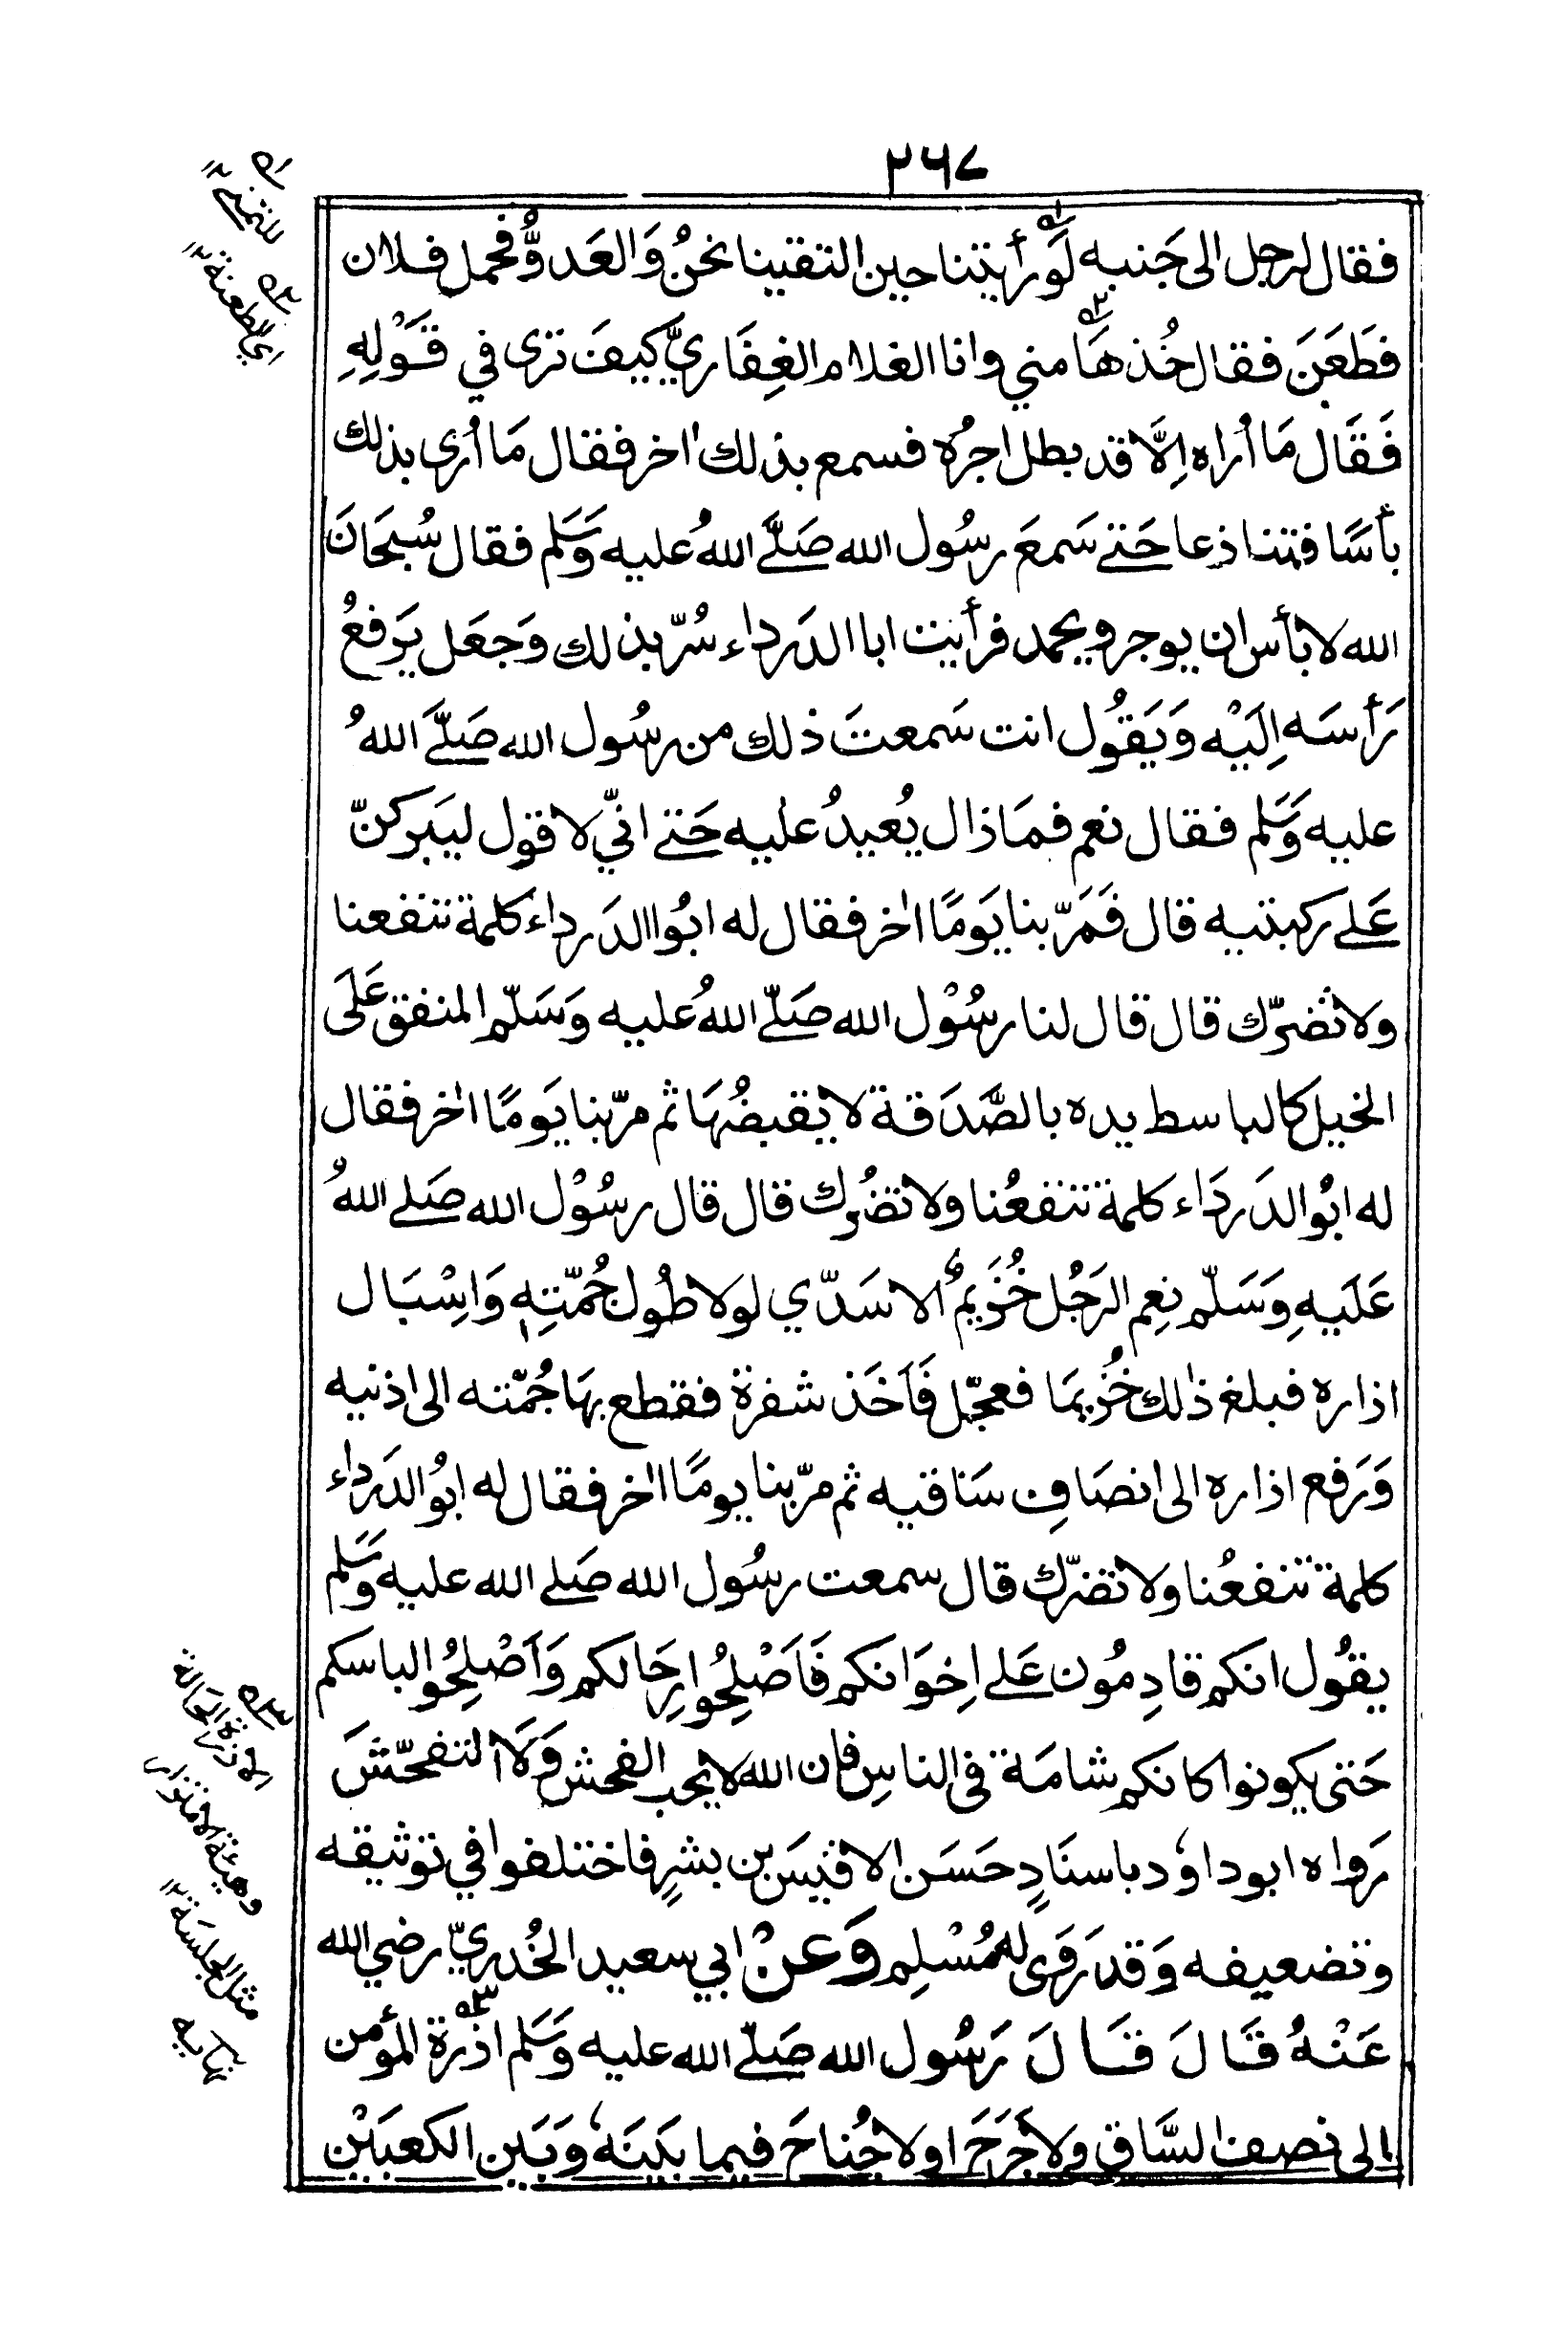 ٢٦٧
فقال لرجل الى جَنبه لَو رأيتنا حين التقينا نحنُ وَالعَدوُّ فحمل فلان
فطَعَنَ فقال خُذهَا مني وانا الغلام الغِفَاريُّ كيفَ ترى في قَوْلِهِ
فَقَال مَا أُراه اِلَّا قد بطل اجرُه فسمع بذلك اٰخر فقال مَا أرى بذلك
بأسًا فتنا زعا حَتے سَمعَ رسُول الله صَلَّے اللهُ عليه وَسَلم فقال سُبحَانَ
الله لا بأس ان يوجر ويحمد فرأيت ابا الدَرداء سُرّ بذلك وَجعَل يَرفعُ
رَأسَه اِلَيْه وَيَقُول انت سَمعتَ ذلك من رسُول الله صَلَّے اللهُ
عليه وَسَلم فقال نعم فمَا زال يُعيدُ عليه حَتے انّي لا قول ليَبركنّ
عَلے ركبتيه قال فَمَرّ بنا يَومًا اٰخر فقال له ابُوا الدَرداء كلمة تنفعنا
ولا تضرّك قال قال لنا رسُوْل الله صَلّے اللهُ عليه وَسَلّم المنفق عَلَى
الخيل كالباسط يده بالصَّدَقة لا يقبضُهَا ثم مرّ بنا يَومًا اٰخر فقال
له ابُوالدَردَاء كلمة تنفعُنا ولا تضُرك قال قال رسُوْل الله صَلے اللهُ
عَلَيهِ وَسَلّم نِعم الرَجُل خُزَيمُ الاسَدّي لولا طُول جُمّتِهٖ وَاِسْبَال
ازاره فبلغ ذٰلك خُزيمَا فعجّل فَاَخَذ شفرة فقطع بهَا جُمّته الى اذنيه
وَرَفع ازاره الى انصَافِ سَاقيه ثم مرّ بنا يومًا اٰخر فقال له ابُوالدَرداء
كلمة تنفعُنا ولا تضرّك قال سمعت رسُول الله صَلے الله عليه وَسَلم
يقُول انكم قادِمُون عَلے اِخوَانكم فَاَصْلِحُوا رِحَالكم وَاَصْلِحُوا لباسكم
حَتى يكونوا كانكم شامَة فى الناسِ فان الله لا يحب الفحش وَلَا التفحّشَ
رَواه ابوداوٗد باسنَادٍ حَسَن الا قيسَ بن بشرٍ فاختلفوا في توثيقه
وتضعيفه وَقد رَوٰى له مُسْلِم وَعنْ ابي سعيد الخُدريّ رضي الله
عَنْهُ قَالَ قَالَ رَسُول الله صَلّے الله عليه وَسَلم اذْرة المؤمن
الى نصف السَّاق ولا حَرَجَ اولا جُناحَ فيما بَينَهٗ وَبَين الكعبَيْن
للتمني ١٢
اي الطعنة ١٢
الازرة الحالة
وهيئة الاتزار
مثل الجلسَة ١٢
نهايه